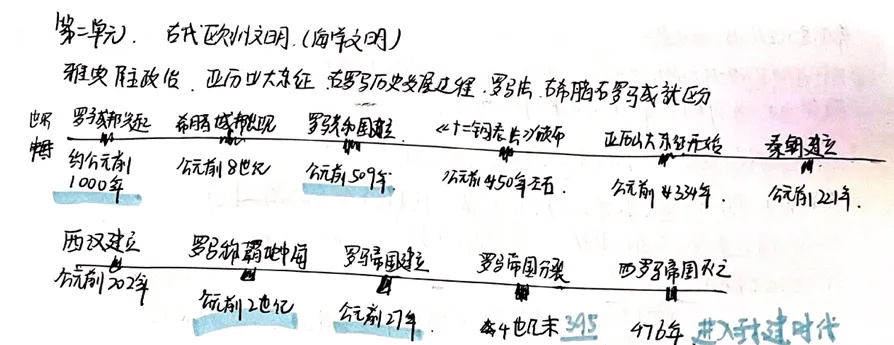 第二单元. 古代欧州文明.(海洋文明)
雅典民主政治. 亚历山大东征. 古罗马历史发展过程. 罗马法. 古希腊古罗马成就区分
罗马城邦兴起 希腊城邦出现 罗马共和国建立 《十二铜表法》颁布 亚历山大东征开始 秦朝建立
约公元前1000年 公元前8世纪 公元前509年 公元前450年左右. 公元前334年. 公元前221年.
西汉建立 罗马称霸地中海 罗马帝国建立 罗马帝国分裂 西罗马帝国灭亡
公元前202年 公元前2世纪 公元前27年. 4世纪末 395 476年 进入封建时代